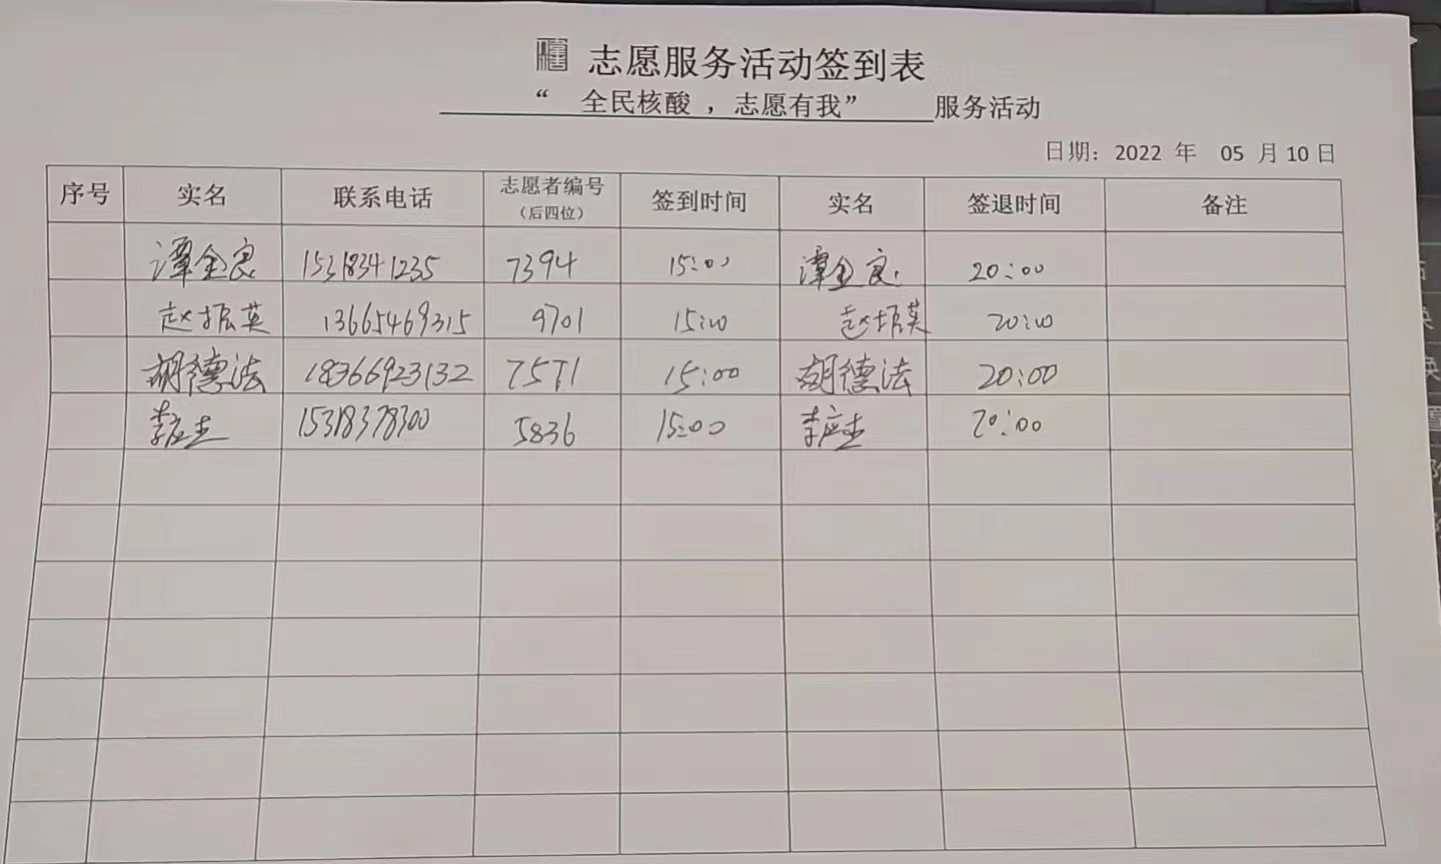 志愿服务活动签到表
“ 全民核酸 ，志愿有我” 服务活动
日期：2022 年 05 月 10 日
序号 实名 联系电话 志愿者编号（后四位） 签到时间 实名 签退时间 备注
谭金良 15318341235 7394 15:00 谭金良 20:00
赵振英 13665469315 9701 15:00 赵振英 20:00
胡德法 18366923132 7571 15:00 胡德法 20:00
李应杰 15318378300 5836 15:00 李应杰 20:00